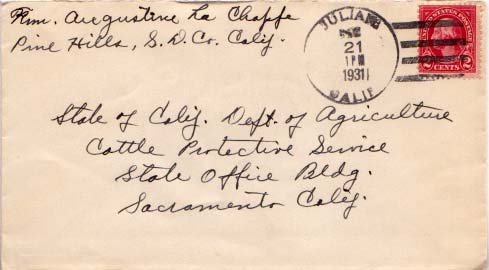 Fem. Augustine La Chappe
Pine Hills, S. D. Co. Calif.
JULIAN
21
1 PM
1931
CALIF
UNITED STATES POSTAGE
2 CENTS 2
State of Calif. Dept. of Agriculture
Cattle Protective Service
State Office Bldg.
Sacramento Calif.